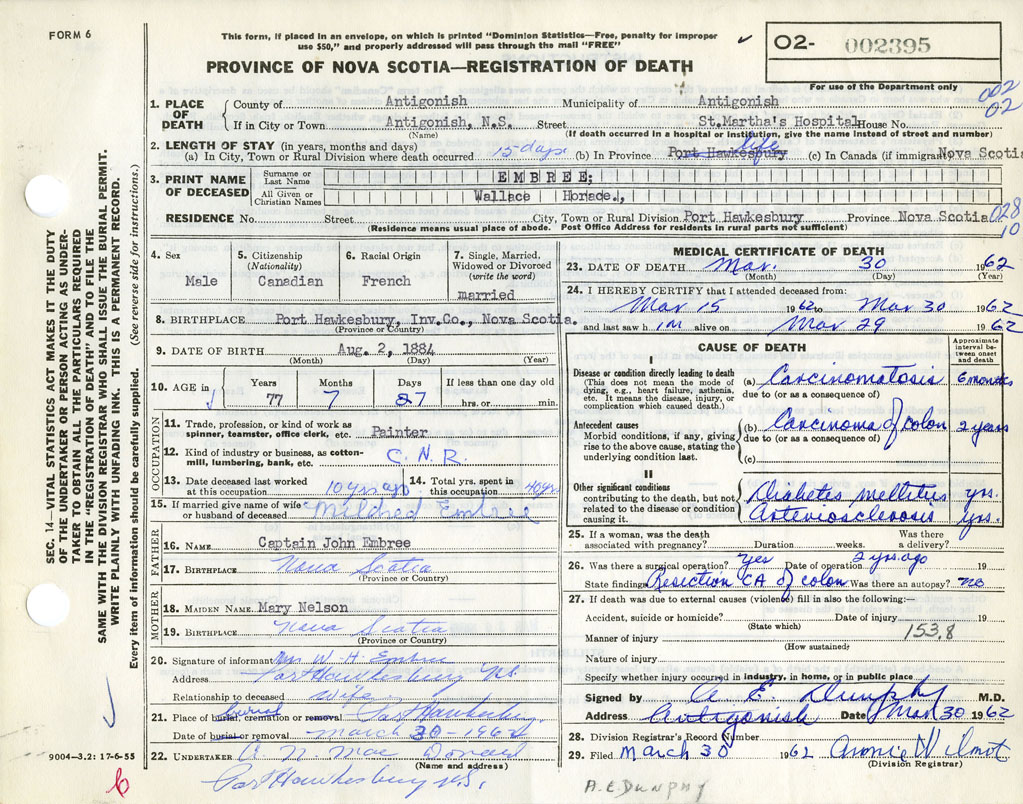 FORM 6
This form, if placed in an envelope, on which is printed "Dominion Statistics—Free, penalty for improper
use $50," and properly addressed will pass through the mail "FREE"
02- 002395
PROVINCE OF NOVA SCOTIA—REGISTRATION OF DEATH
For use of the Department only
002
02
1. PLACE OF DEATH County of Antigonish Municipality of Antigonish
If in City or Town Antigonish, N.S. Street St.Martha's Hospital House No.
(Name) (If death occurred in a hospital or institution, give the name instead of street and number)
2. LENGTH OF STAY (in years, months and days)
(a) In City, Town or Rural Division where death occurred 15 days (b) In Province Port Hawkesbury life (c) In Canada (if immigrant) Nova Scotia
3. PRINT NAME OF DECEASED Surname or Last Name EMBREE;
All Given or Christian Names Wallace Horace.,
RESIDENCE No. Street City, Town or Rural Division Port Hawkesbury Province Nova Scotia
(Residence means usual place of abode. Post Office Address for residents in rural parts not sufficient)
028
10
4. Sex Male
5. Citizenship (Nationality) Canadian
6. Racial Origin French
7. Single, Married, Widowed or Divorced (write the word) married
8. BIRTHPLACE Port Hawkesbury, Inv.Co., Nova Scotia.
(Province or Country)
9. DATE OF BIRTH Aug. 2, 1884
(Month) (Day) (Year)
10. AGE in Years Months Days If less than one day old
77 7 27 hrs. or min.
OCCUPATION
11. Trade, profession, or kind of work as
spinner, teamster, office clerk, etc. Painter
12. Kind of industry or business, as cotton-
mill, lumbering, bank, etc. C.N.R.
13. Date deceased last worked at this occupation 10 yrs ago 14. Total yrs. spent in this occupation 40 yrs
15. If married give name of wife or husband of deceased Mildred Embree
FATHER
16. NAME Captain John Embree
17. BIRTHPLACE Nova Scotia
(Province or Country)
MOTHER
18. MAIDEN NAME. Mary Nelson
19. BIRTHPLACE Nova Scotia
(Province or Country)
20. Signature of informant Mrs W. H. Embree
Address Port Hawkesbury N.S.
Relationship to deceased wife
21. Place of burial, cremation or removal burial Port Hawkesbury
Date of burial or removal March 30-1962
22. UNDERTAKER A N Mac Donald
(Name and address)
Port Hawkesbury N.S.
MEDICAL CERTIFICATE OF DEATH
23. DATE OF DEATH Mar. 30 1962
(Month) (Day) (Year)
24. I HEREBY CERTIFY that I attended deceased from:
Mar 15 1962 to Mar 30 1962
and last saw h im alive on Mar 29 1962
CAUSE OF DEATH
Approximate interval between onset and death
I
Disease or condition directly leading to death
(This does not mean the mode of
dying, e.g., heart failure, asthenia,
etc. It means the disease, injury, or
complication which caused death.)
(a) Carcinomatosis 6 months
due to (or as a consequence of)
Antecedent causes
Morbid conditions, if any, giving
rise to the above cause, stating the
underlying condition last.
(b) Carcinoma of colon 2 years
due to (or as a consequence of)
(c)
II
Other significant conditions
contributing to the death, but not
related to the disease or condition
causing it.
Diabetes mellitus yrs.
Arteriosclerosis yrs.
25. If a woman, was the death associated with pregnancy? Duration weeks. Was there a delivery?
26. Was there a surgical operation? yes Date of operation 2 yrs. ago 19
State findings Resection CA of colon Was there an autopsy? no
27. If death was due to external causes (violence) fill in also the following:—
Accident, suicide or homicide? Date of injury 19
(State which)
153.8
Manner of injury
(How sustained)
Nature of injury
Specify whether injury occurred in industry, in home, or in public place
Signed by A E. Dunphy M.D.
Address Antigonish Date Mar 30 1962
28. Division Registrar's Record Number
29. Filed March 30 1962 Annie Wilmot
(Division Registrar)
A.E. DUNPHY
SEC. 14—VITAL STATISTICS ACT MAKES IT THE DUTY
OF THE UNDERTAKER OR PERSON ACTING AS UNDER-
TAKER TO OBTAIN ALL THE PARTICULARS REQUIRED
IN THE "REGISTRATION OF DEATH" AND TO FILE THE
SAME WITH THE DIVISION REGISTRAR WHO SHALL ISSUE THE BURIAL PERMIT.
WRITE PLAINLY WITH UNFADING INK. THIS IS A PERMANENT RECORD.
Every item of information should be carefully supplied. (See reverse side for instructions.)
9004—3.2: 17-6-55
6